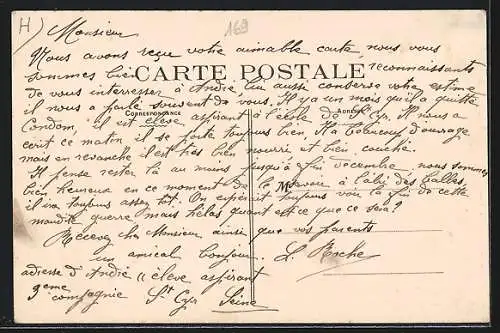 H)
169
Monsieur
Nous avons reçu votre aimable carte, nous vous
sommes bien CARTE POSTALE reconnaissants
de vous interresser à André lui aussi conserve votre estime
il nous a parlé souvent de vous. Il y a un mois qu'il a quitté
CORRESPONDANCE ADRESSE
Condom, il est élève aspirant à l'école de St Cyr. Il nous a
écrit ce matin il se porte toujours bien. Il a beaucoup d'ouvrage
mais en revanche il est très bien nourri et bien couché.
Il pense rester là au moins jusqu'à fin décembre nous sommes
bien heureux en ce moment de le savoir à l'abri des balles
il ira toujours assez tôt. On espérait toujours voir la fin de cette
maudite guerre mais hélas quand est ce que ce sera?
Recevez cher Monsieur ainsi que vos parents
un amical bonjour. L. Roche
adresse d'André "élève aspirant
9eme compagnie St Cyr Seine